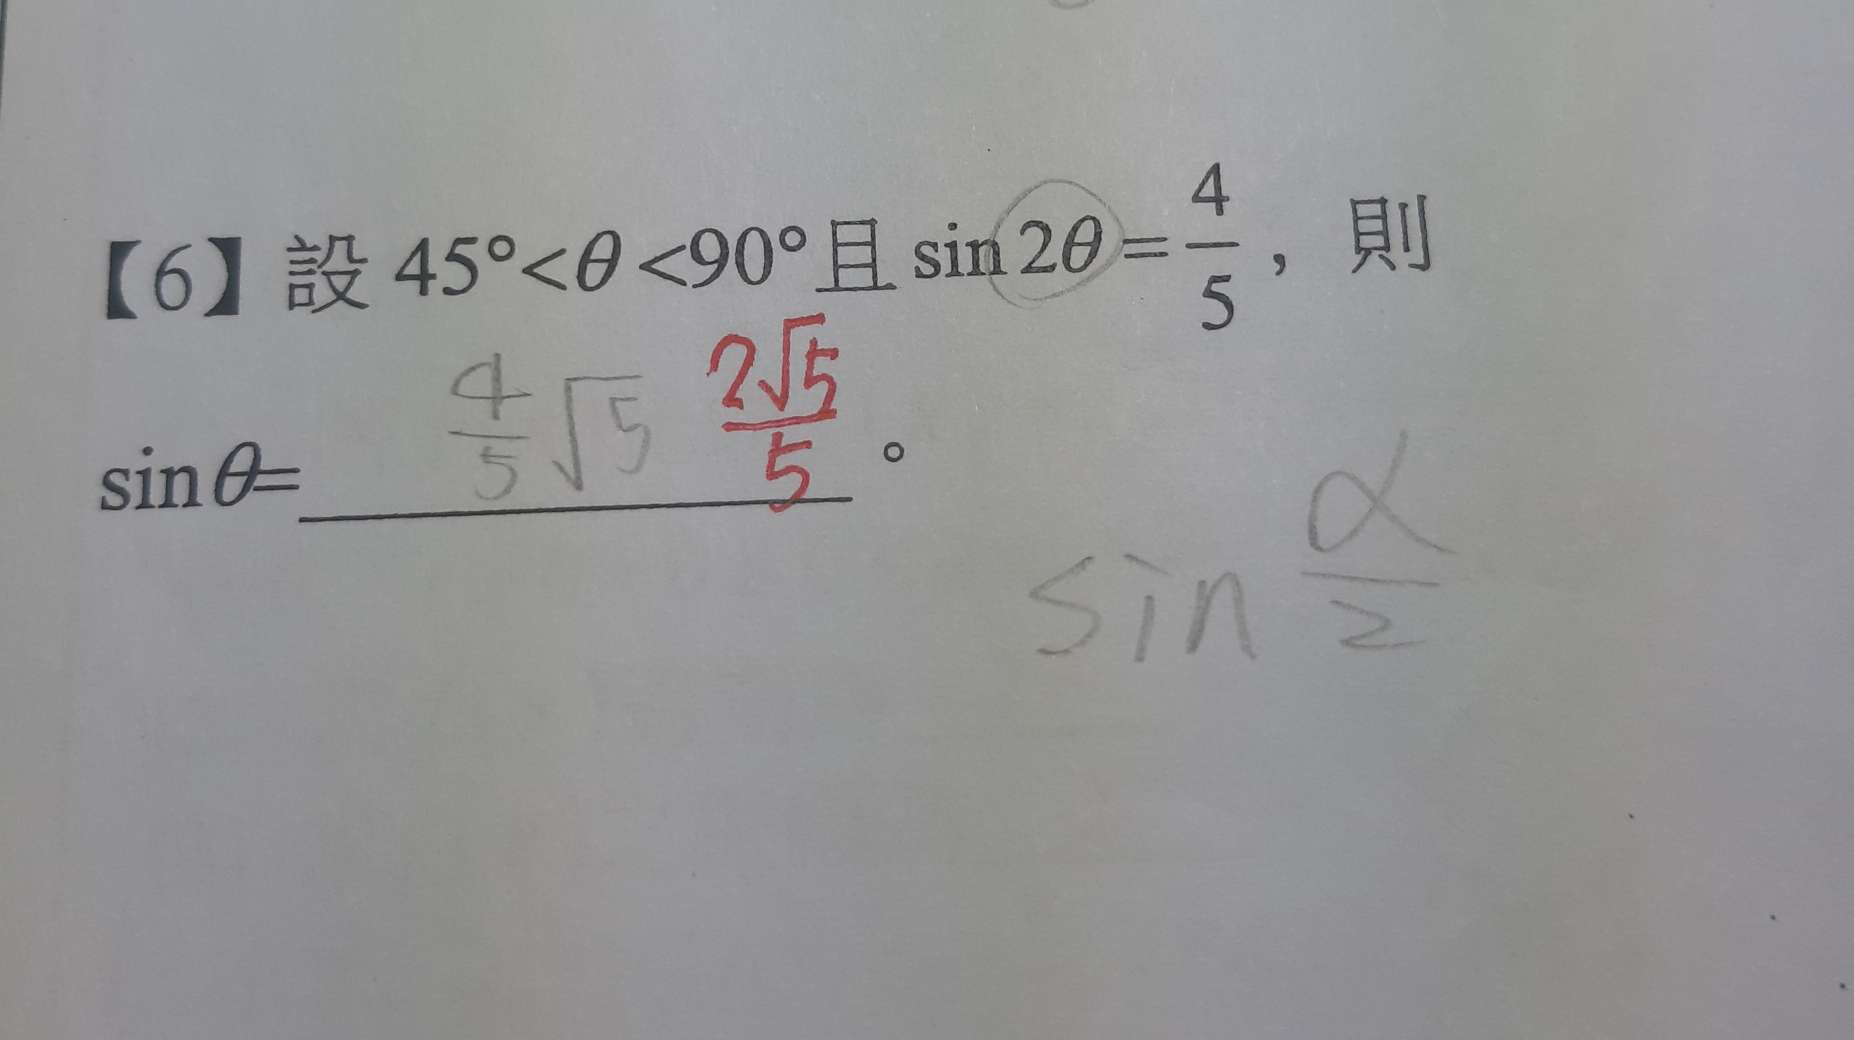 【6】設 45°<θ<90°且 sin2θ=4/5，則
sinθ= 4/5√5 2√5/5 。
sin α/2